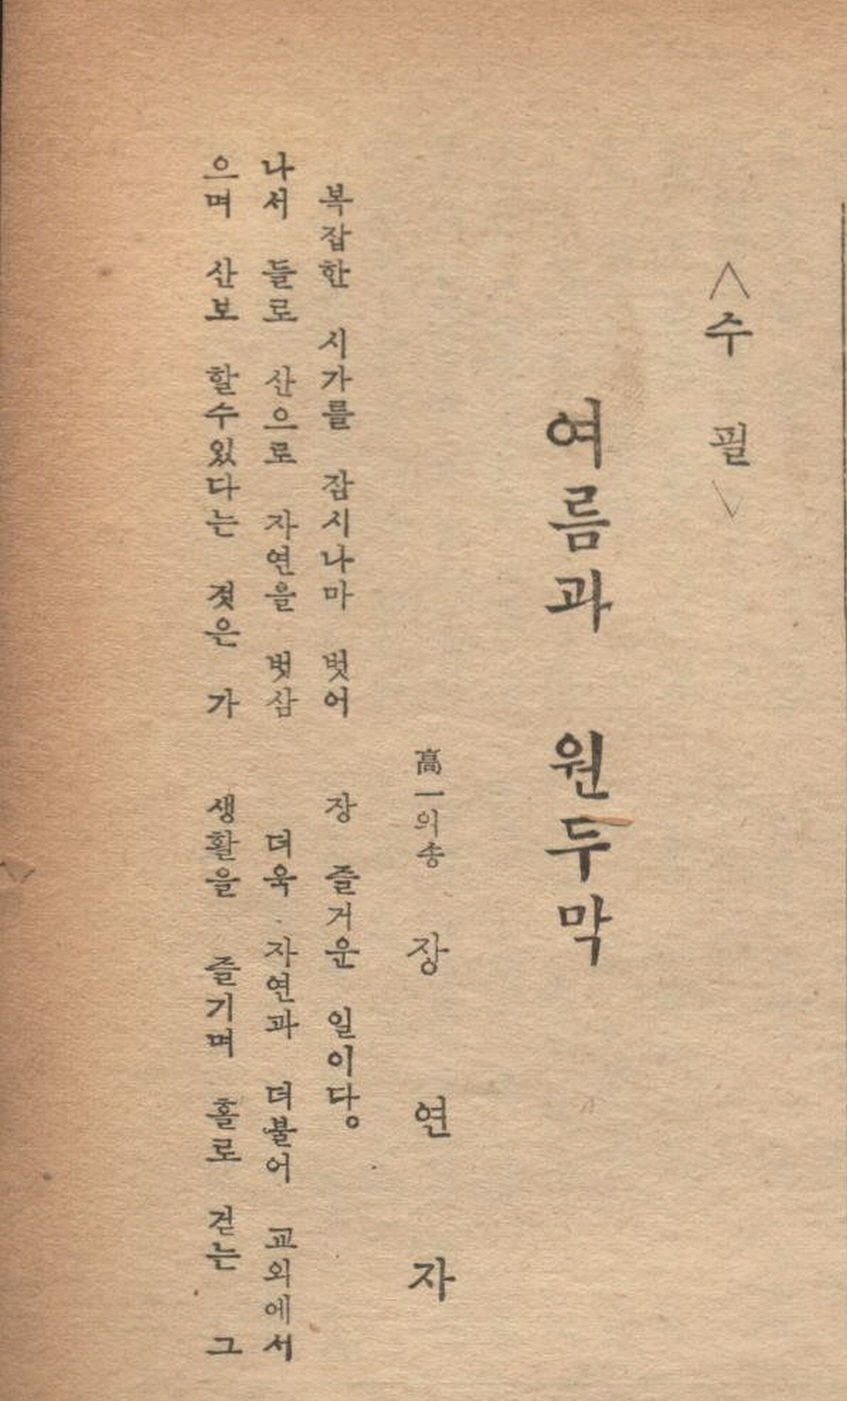 <수필>
여름과 원두막
高一의송 장연자
복잡한 시가를 잠시나마 벗어
나서 들로 산으로 자연을 벗삼
으며 산보 할수있다는 것은 가
장 즐거운 일이다。
더욱 자연과 더불어 교외에서
생활을 즐기며 홀로 걷는 그